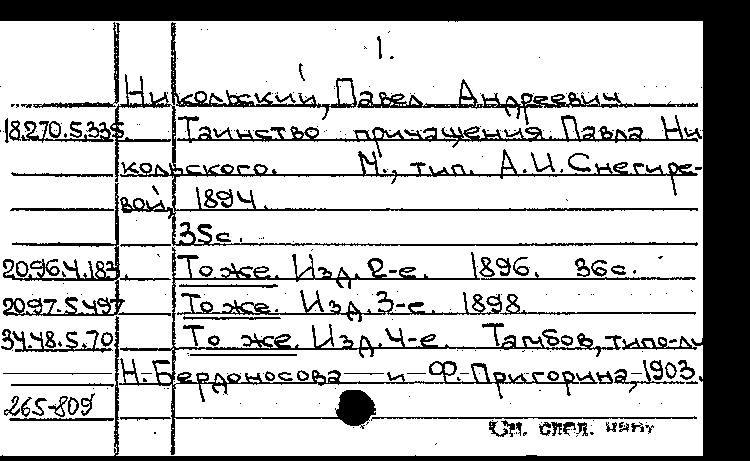 1.
Никольский, Павел Андреевич
18.270.5.335. Таинство причащения. Павла Ни
кольского. М., тип. А.И. Снегире-
вой, 1894.
35с.
20.96.4.183. То же. Изд. 2-е. 1896. 36с.
20.97.5.497 То же. Изд. 3-е. 1898.
34.48.5.70 То же. Изд. 4-е. Тамбов, типо-ли
Н. Бердоносова и Ф. Пригорина, 1903.
265-809
См. след.